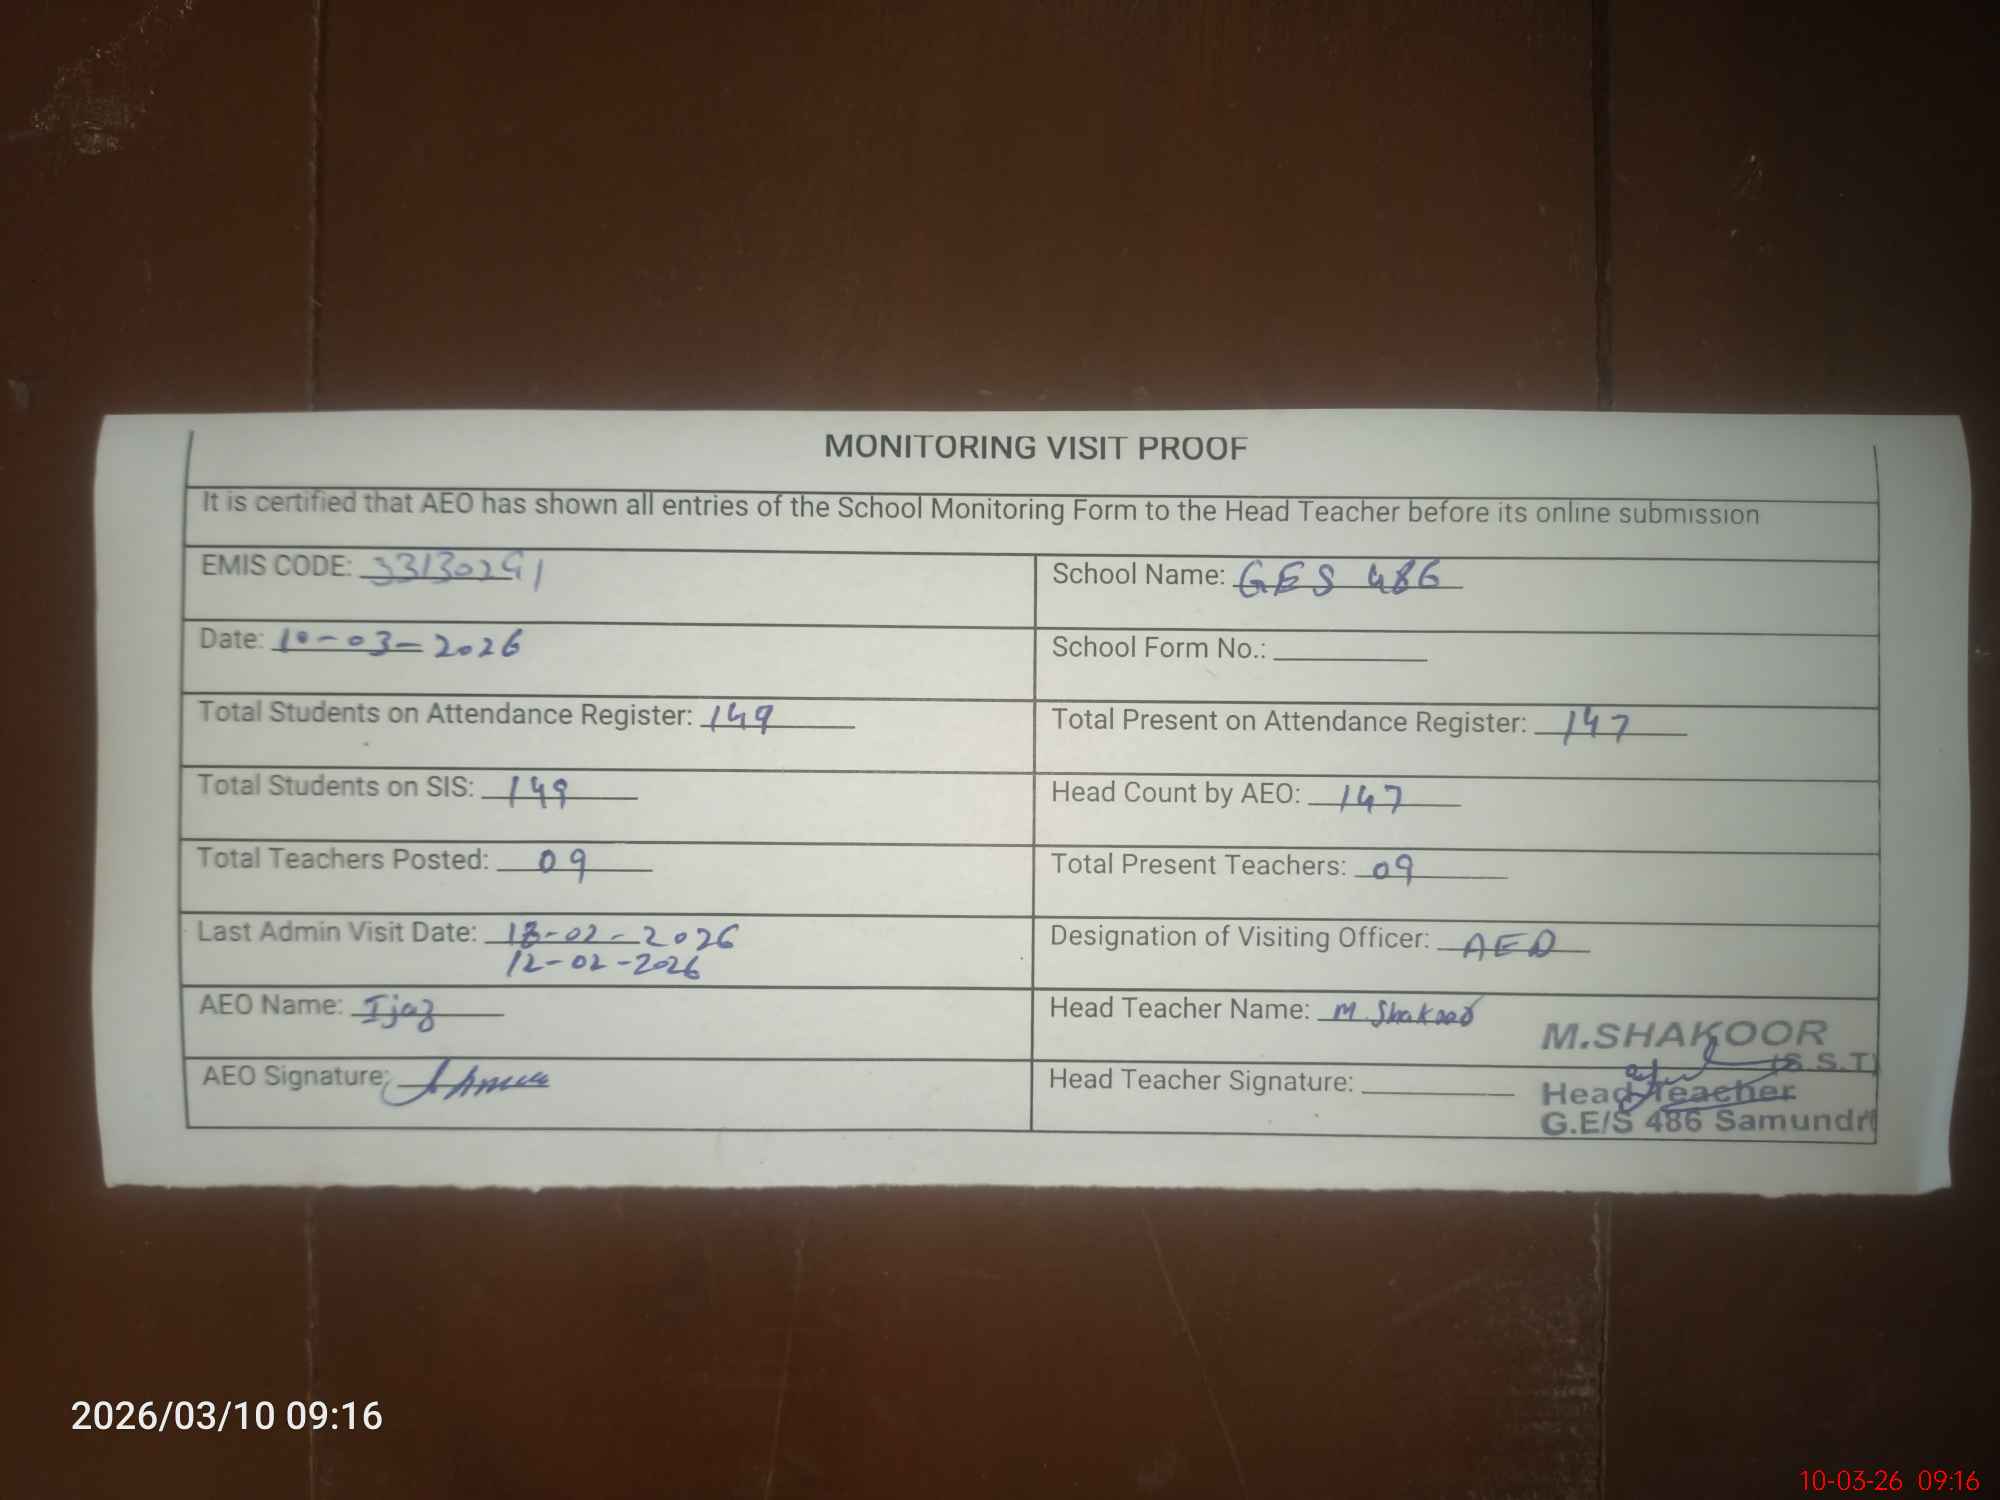 MONITORING VISIT PROOF
It is certified that AEO has shown all entries of the School Monitoring Form to the Head Teacher before its online submission
EMIS CODE: 33130291
School Name: GES 486
Date: 10-03-2026
School Form No.:
Total Students on Attendance Register: 149
Total Present on Attendance Register: 147
Total Students on SIS: 149
Head Count by AEO: 147
Total Teachers Posted: 09
Total Present Teachers: 09
Last Admin Visit Date: 18-02-2026
12-02-2026
Designation of Visiting Officer: AEO
AEO Name: Ijaz
Head Teacher Name: M. Shakoor
AEO Signature:
Head Teacher Signature:
M.SHAKOOR
(S.S.T)
Head Teacher
G.E/S 486 Samundri
2026/03/10 09:16
10-03-26 09:16